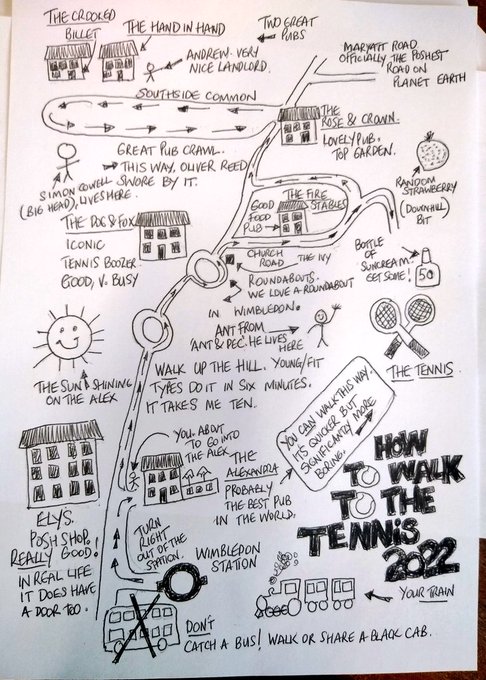 THE CROOKED
BILLET
THE HAND IN HAND
TWO GREAT
PUBS
ANDREW. VERY
NICE LANDLORD.
MARYATT ROAD
OFFICIALLY THE POSHEST
ROAD ON
PLANET EARTH
SOUTHSIDE COMMON
THE
ROSE & CROWN.
LOVELY PUB.
TOP GARDEN.
GREAT PUB CRAWL.
THIS WAY. OLIVER REED
SWORE BY IT.
SIMON COWELL
(BIG HEAD), LIVES HERE.
RANDOM
STRAWBERRY
(DOWNHILL)
BIT
THE FIRE
STABLES
GOOD
FOOD
PUB
THE DOG & FOX
ICONIC
TENNIS BOOZER
GOOD, V. BUSY
CHURCH
ROAD
THE IVY
ROUNDABOUTS.
WE LOVE A ROUNDABOUT
IN WIMBLEDON.
BOTTLE OF
SUNCREAM.
GET SOME!
50
ANT FROM
'ANT & DEC'. HE LIVES
HERE
THE TENNIS.
THE SUN SHINING
ON THE ALEX
WALK UP THE HILL. YOUNG/FIT
TYPES DO IT IN SIX MINUTES.
IT TAKES ME TEN.
YOU CAN WALK THIS WAY.
IT'S QUICKER BUT
SIGNIFICANTLY MORE
BORING.
YOU. ABOUT
TO GO INTO
THE ALEX
THE
ALEXANDRA
PROBABLY
THE BEST PUB
IN THE WORLD.
HOW
TO WALK
TO THE
TENNIS
2022
ELYS.
POSH SHOP.
REALLY GOOD!
IN REAL LIFE
IT DOES HAVE
A DOOR TOO.
TURN
RIGHT
OUT OF THE
STATION.
WIMBLEDON
STATION
YOUR TRAIN
DON'T
CATCH A BUS! WALK OR SHARE A BLACK CAB.